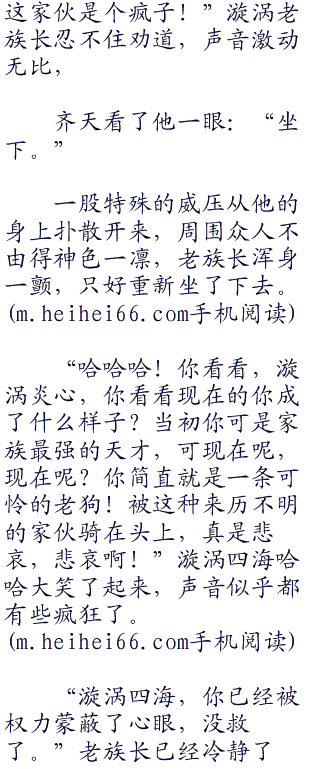 这家伙是个疯子！”漩涡老
族长忍不住劝道，声音激动
无比，
齐天看了他一眼：“坐
下。”
一股特殊的威压从他的
身上扑散开来，周围众人不
由得神色一凛，老族长浑身
一颤，只好重新坐了下去。
(m.heihei66.com手机阅读)
“哈哈哈！你看看，漩
涡炎心，你看看现在的你成
了什么样子？当初你可是家
族最强的天才，可现在呢，
现在呢？你简直就是一条可
怜的老狗！被这种来历不明
的家伙骑在头上，真是悲
哀，悲哀啊！”漩涡四海哈
哈大笑了起来，声音似乎都
有些疯狂了。
(m.heihei66.com手机阅读)
“漩涡四海，你已经被
权力蒙蔽了心眼，没救
了。”老族长已经冷静了